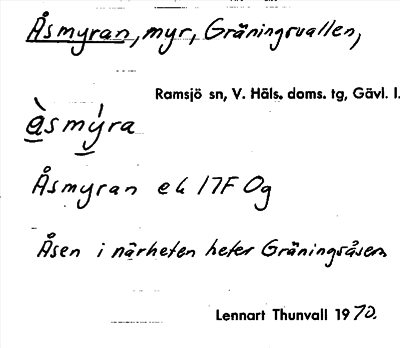 Åsmyran, myr, Gräningsvallen,
Ramsjö sn, V. Häls. doms. tg, Gävl. l.
åsmýra
Åsmyran ek 17F 0g
Åsen i närheten heter Gräningsåsen
Lennart Thunvall 1970.